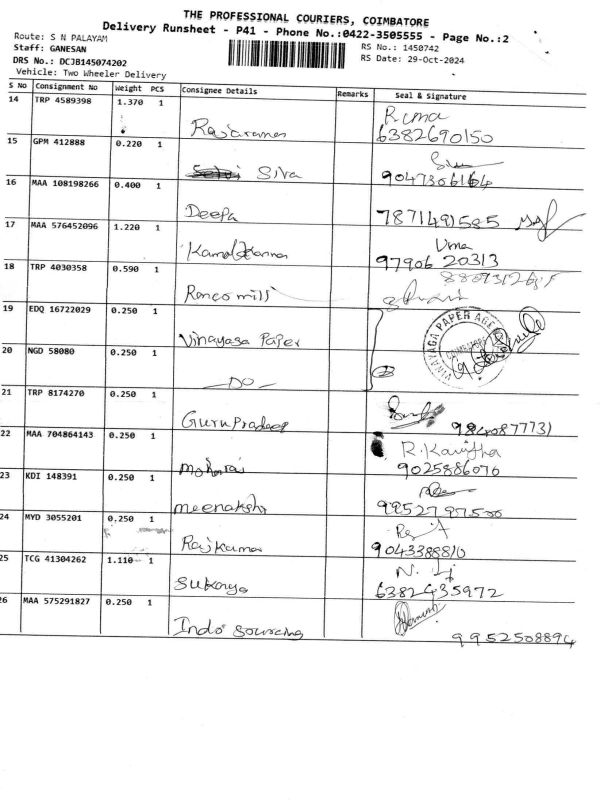 THE PROFESSIONAL COURIERS, COIMBATORE
Delivery Runsheet - P41 - Phone No.:0422-3505555 - Page No.:2
Route: S N PALAYAM
Staff: GANESAN RS No.: 1450742
DRS No.: DCJB145074202 RS Date: 29-Oct-2024
Vehicle: Two Wheeler Delivery
S No Consignment No Weight PCS Consignee Details Remarks Seal & Signature
14 TRP 4589398 1.370 1 Rajaraman
6382690150
15 GPM 412888 0.220 1 Siva
9047306164
16 MAA 108198266 0.400 1 Deepa 7871491585
17 MAA 576452096 1.220 1 Uma
97906 20313
18 TRP 4030358 0.590 1 Ranco mill
19 EDQ 16722029 0.250 1 Vinayaga Paper VINAYAGA PAPER
20 NGD 58080 0.250 1 -DO- COIMBATORE
21 TRP 8174270 0.250 1 Guru Pradeep
22 MAA 704864143 0.250 1 R. Kavitha
9025886070
23 KDI 148391 0.250 1 meenakshi
24 MYD 3055201 0.250 1 Rajkumar
9043388810
25 TCG 41304262 1.110 1
6382435972
26 MAA 575291827 0.250 1 Indo sourcing
9952508894